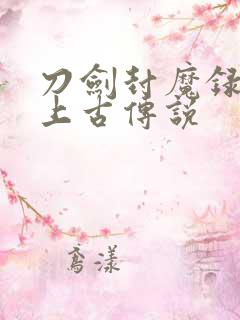 刀劍封魔録
上古傳説
喬漾